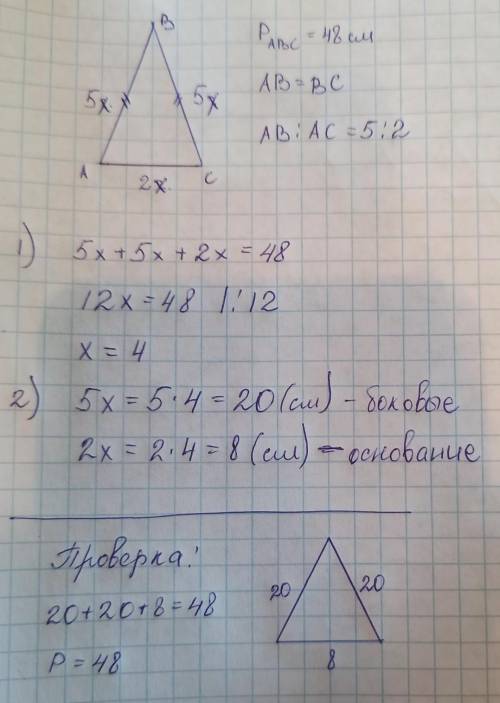 B
P ABC = 48 см
AB = BC
AB : AC = 5 : 2
5x 5x
A C
2x
1) 5x + 5x + 2x = 48
12x = 48 | : 12
x = 4
2) 5x = 5 · 4 = 20 (см) - боковые
2x = 2 · 4 = 8 (см) - основание
Проверка:
20 + 20 + 8 = 48
P = 48
20 20
8